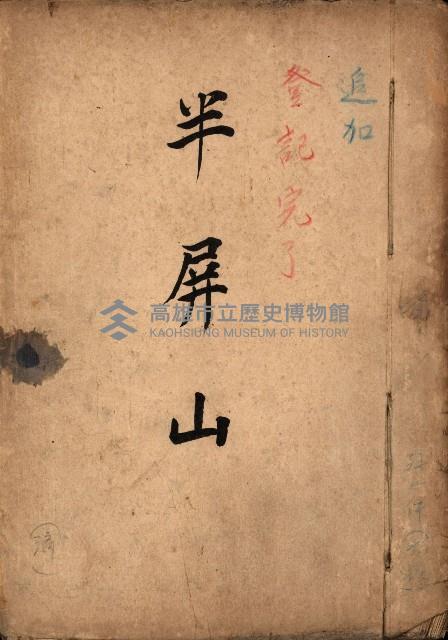 追加
登記完了
半屏山
高雄市立歷史博物館
KAOHSIUNG MUSEUM OF HISTORY
濟